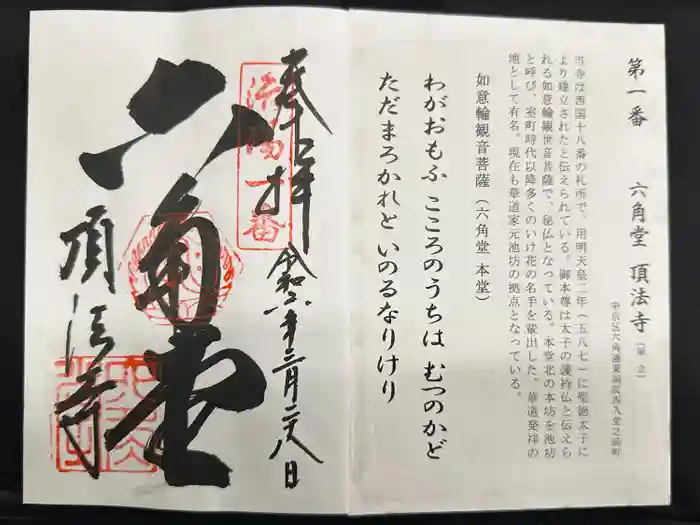 第一番 六角堂 頂法寺(単立)
中京区六角通東洞院西入堂之前町
当寺は西国十八番の札所で、用明天皇二年(五八七)に聖徳太子に
より建立されたと伝えられている。御本尊は太子の護持仏と伝えら
れる如意輪観世音菩薩で、秘仏となっている。本堂北の本坊を池坊
と呼び、室町時代以降多くのいけ花の名手を輩出した。華道発祥の
地として有名。現在も華道家元池坊の拠点となっている。
如意輪観音菩薩(六角堂 本堂)
わがおもふ こころのうちは むつのかど
ただまろかれと いのるなりけり
奉拝 令和六年三月二八日
洛陽一番
六角堂
頂法寺